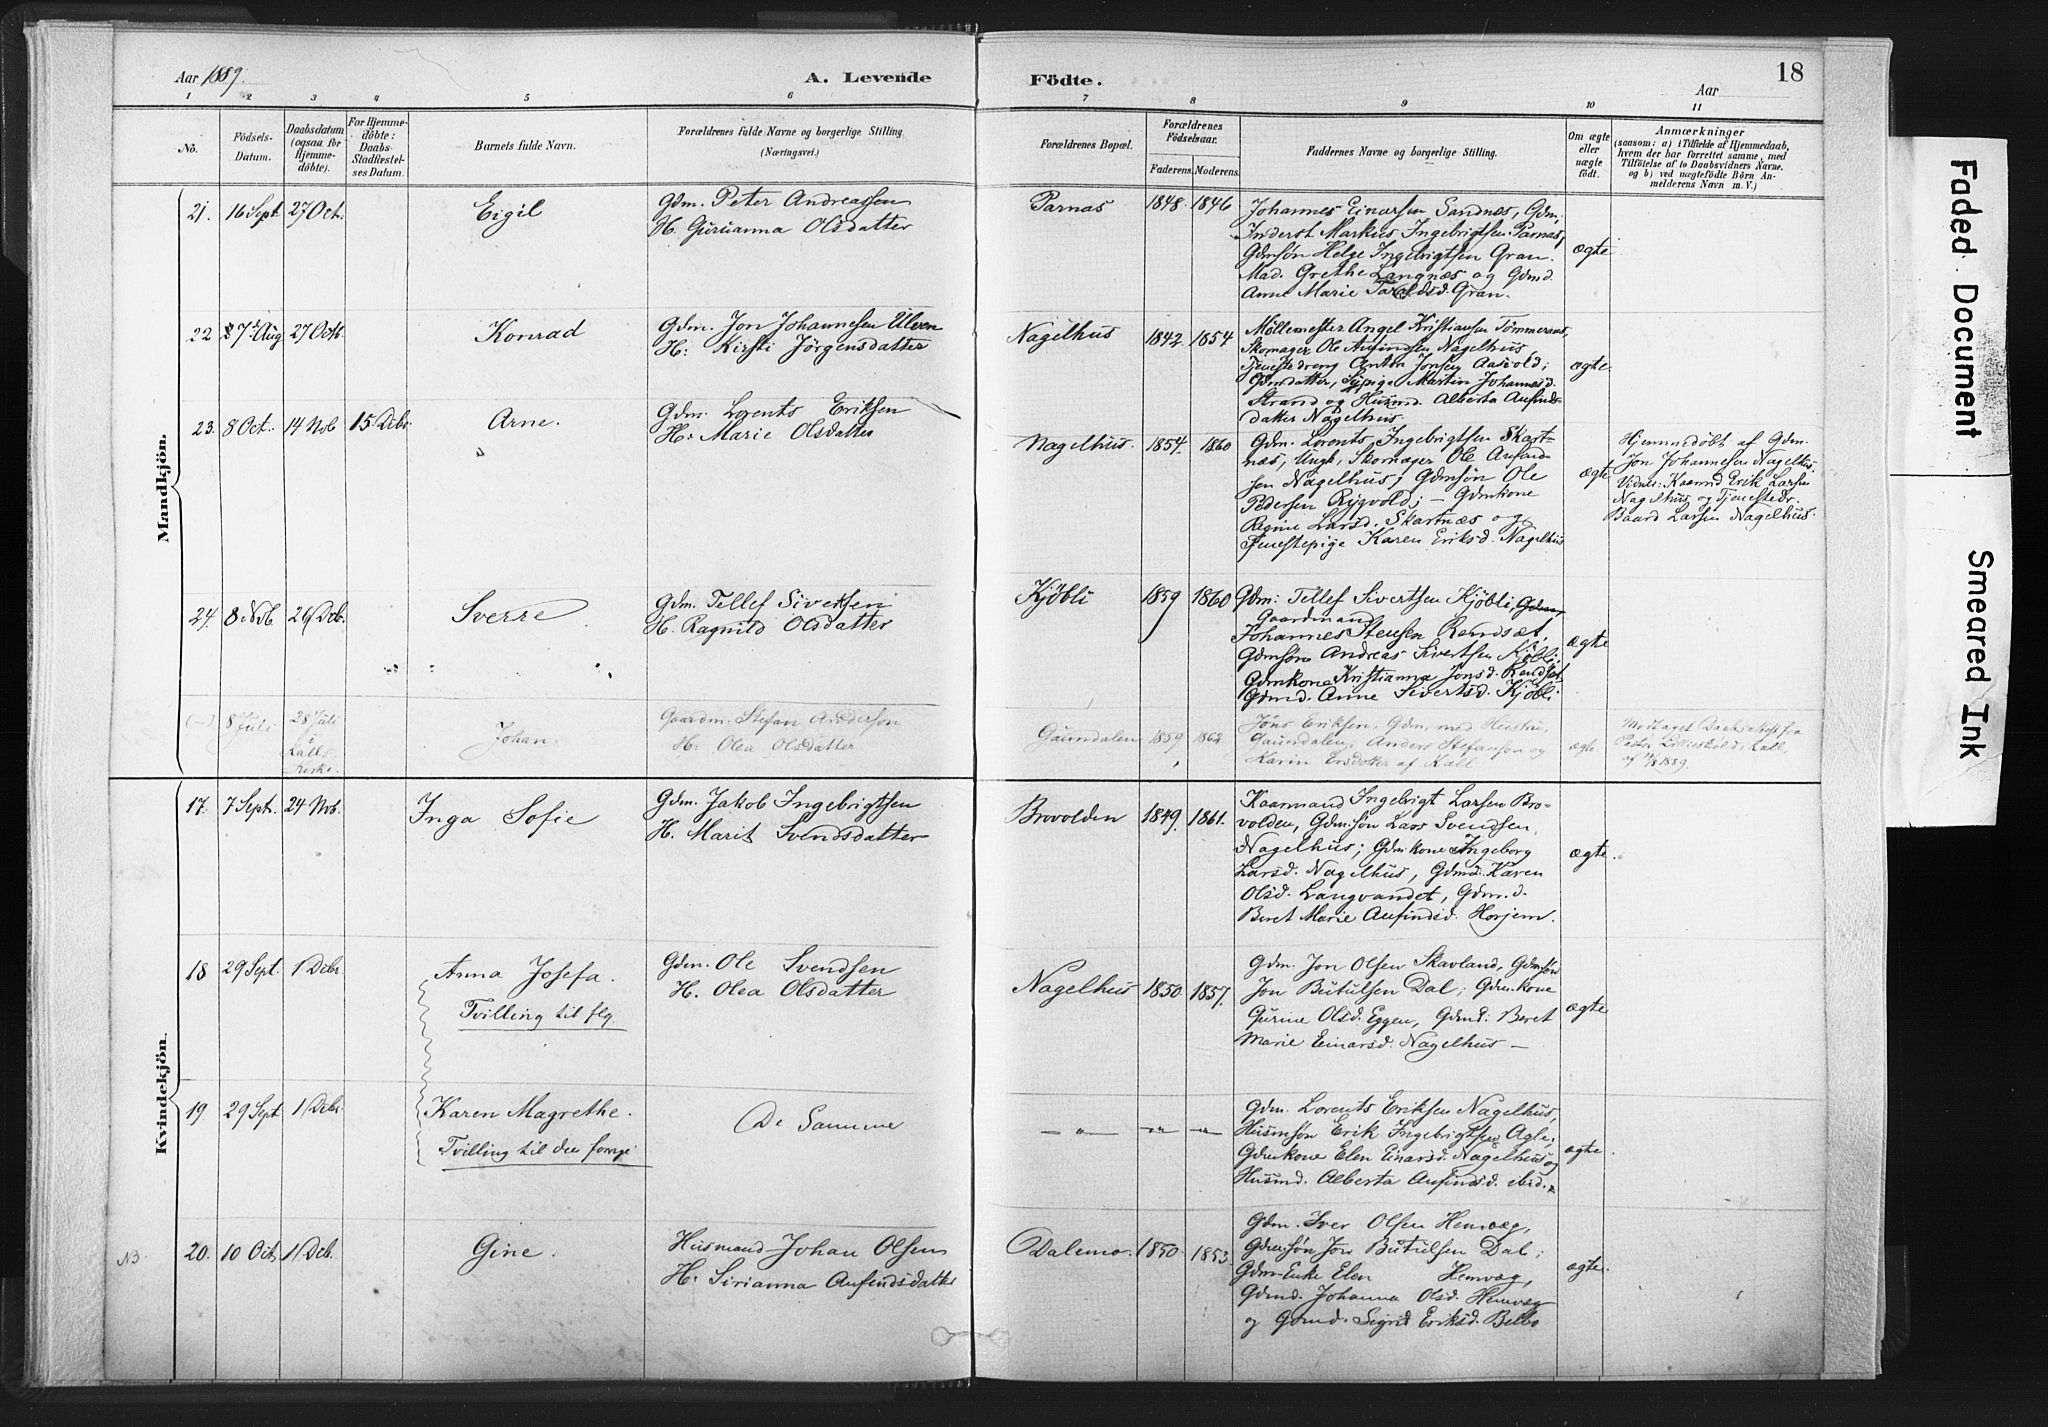 Aar 1889.
A. Levende Födte.
18
Aar
1 2 3 4 5 6 7 8 9 10 11
No.
Födsels-Datum.
Daabsdatum (ogsaa for Hjemmedöbte).
For Hjemmedöbte: Daabs-Stadfæstelses Datum.
Barnets fulde Navn.
Forældrenes fulde Navne og borgerlige Stilling. (Næringsvei.)
Forældrenes Bopæl.
Forældrenes Födselsaar.
Faderens. Moderens.
Faddernes Navne og borgerlige Stilling.
Om ægte eller uægte födt.
Anmærkninger
(saasom: a) i Tilfælde af Hjemmedaab, hvem der har forrettet samme, med Tilföielse af to Daabsvidners Navne, og b) ved uægtefödte Börn Anmelderens Navn m. V.)
Mandkjön.
21. 16 Sept. 27 Oct. Eigil
Gdm. Peter Andreassen
H. Guruanna Olsdatter
Parnas 1848. 1846
Johannes Einarsen Sandnæs, Gdm.
Inderst Markus Ingebrigtsen Parnas,
Gdmsøn Helge Ingebrigtsen Gran.
Mad. Grethe Langnæs og Gdmd.
Anne Marie Taraldsd. Gran.
ægte
22 27 Aug 27 Octb. Konrad
Gdm. Jon Johannesen Ulven
H: Kirsti Jörgensdatter
Nagelhus 1842. 1854
Möllemester Angel Kristiansen Tömmeraas,
Skomager Ole Anfindsen Nagelhus
Tjenestedreng Anton Jonsen Aasvold;
Gdmsdatter, Martin Johannesd.
Strand og Husmd. Alberta Anfinds-
datter Nagelhus.
ægte
23. 8 Oct. 14 Nvb 15 Debr. Arne.
Gdm. Lorents Eriksen
H: Marie Olsdatter
Nagelhus. 1854. 1860
Gdm. Lorents Ingebrigtsen Skart-
næs, Ungk. Skomager Ole Anfind-
sen Nagelhus, Gdmsøn Ole
Pedersen Rygvold; - Gdmkone
Regine Larsd. Skartnæs og
Tjenestepige Karen Eriksd. Nagelhus
ægte
Hjemmedöbt af Gdm.
Jon Johannesen Nagelhus.
Vidner: Kaarmd Erik Larsen
Nagelhus og Tjenestedr.
Baard Larsen Nagelhus.
24. 8. Nvb. 26 Deb. Sverre
Gdm. Tellef Sivertsen
H. Ragnild Olsdatter
Kjöbli 1859 1860
Gdm: Tellef Sivertsen Kjöbli, Gdm,
Gaardmand
Johannes Stensen Rendsæt,
Gdmsøn Andreas Sivertsen Kjöbli,
Gdmkone Kristianna Jonsd. Rendsæt
Gdmd. Anne Sivertsd. Kjöbli
ægte
(-) 8 Juli 28 Juli i Kalls Kirke. Johan.
Gaardm. Stefan Anderson
H: Olea Olsdatter
Gaundalen 1859 1862
Jöns Eriksen, Gdm. med Hustru,
Gaundalen, Anders Stefanson og
Karin Ersdotter af Kall
ægte
Modtaget Daabsattest fra
Pastor Lillieskold, Kall,
af 1889.
Kvindekjön.
17. 7 Sept. 24 Nvb. Inga Sofie
Gdm. Jakob Ingebrigtsen
H. Marit Svendsdatter
Brovolden 1849. 1861.
Kaarmand Ingebrigt Larsen Bro-
volden, Gdmsøn Lars Svendsen
Nagelhus; Gdmkone Ingeborg
Larsd. Nagelhus, Gdmd. Karen
Olsd. Langvandet, Gdm.d.
Beret Marie Anfindsd. Horjem.
ægte.
18 29 Sept. 1 Debr Anna Josefa.
Tvilling til flg.
Gdm. Ole Svendsen
H. Olea Olsdatter
Nagelhus 1850. 1857.
Gdm. Jon Olsen Skavland, Gdmsøn
Jon Butulsen Dal; Gdmkone
Gurine Olsd. Eggen, Gdmd: Beret
Marie Einarsd. Nagelhus -
ægte
19 29 Sept 1 Debr. Karen Magrethe.
Tvilling til den forrige
De Samme
- " - - " - - " -
Gdm. Lorents Eriksen Nagelhus,
Husmsøn Erik Ingebrigtsen Agle,
Gdmkone Elen Einarsd. Nagelhus og
Husmd. Alberta Anfindsd. ibid.
ægte.
NB. 20. 10 Oct. 1 Deb. Gine.
Husmand Johan Olsen
H. Sirianna Anfindsdatter
Dalemo. 1850. 1853
Gdm. Iver Olsen Hemvæg,
Gdmsøn Jon Butulsen Dal;
Gdm-Enke Elen Hemvæg,
Gdmd. Johanna Olsd. Hemvæg
og Gdmd. Sigrid Eriksd. Belbo
ægte.
Faded Document
Smeared Ink